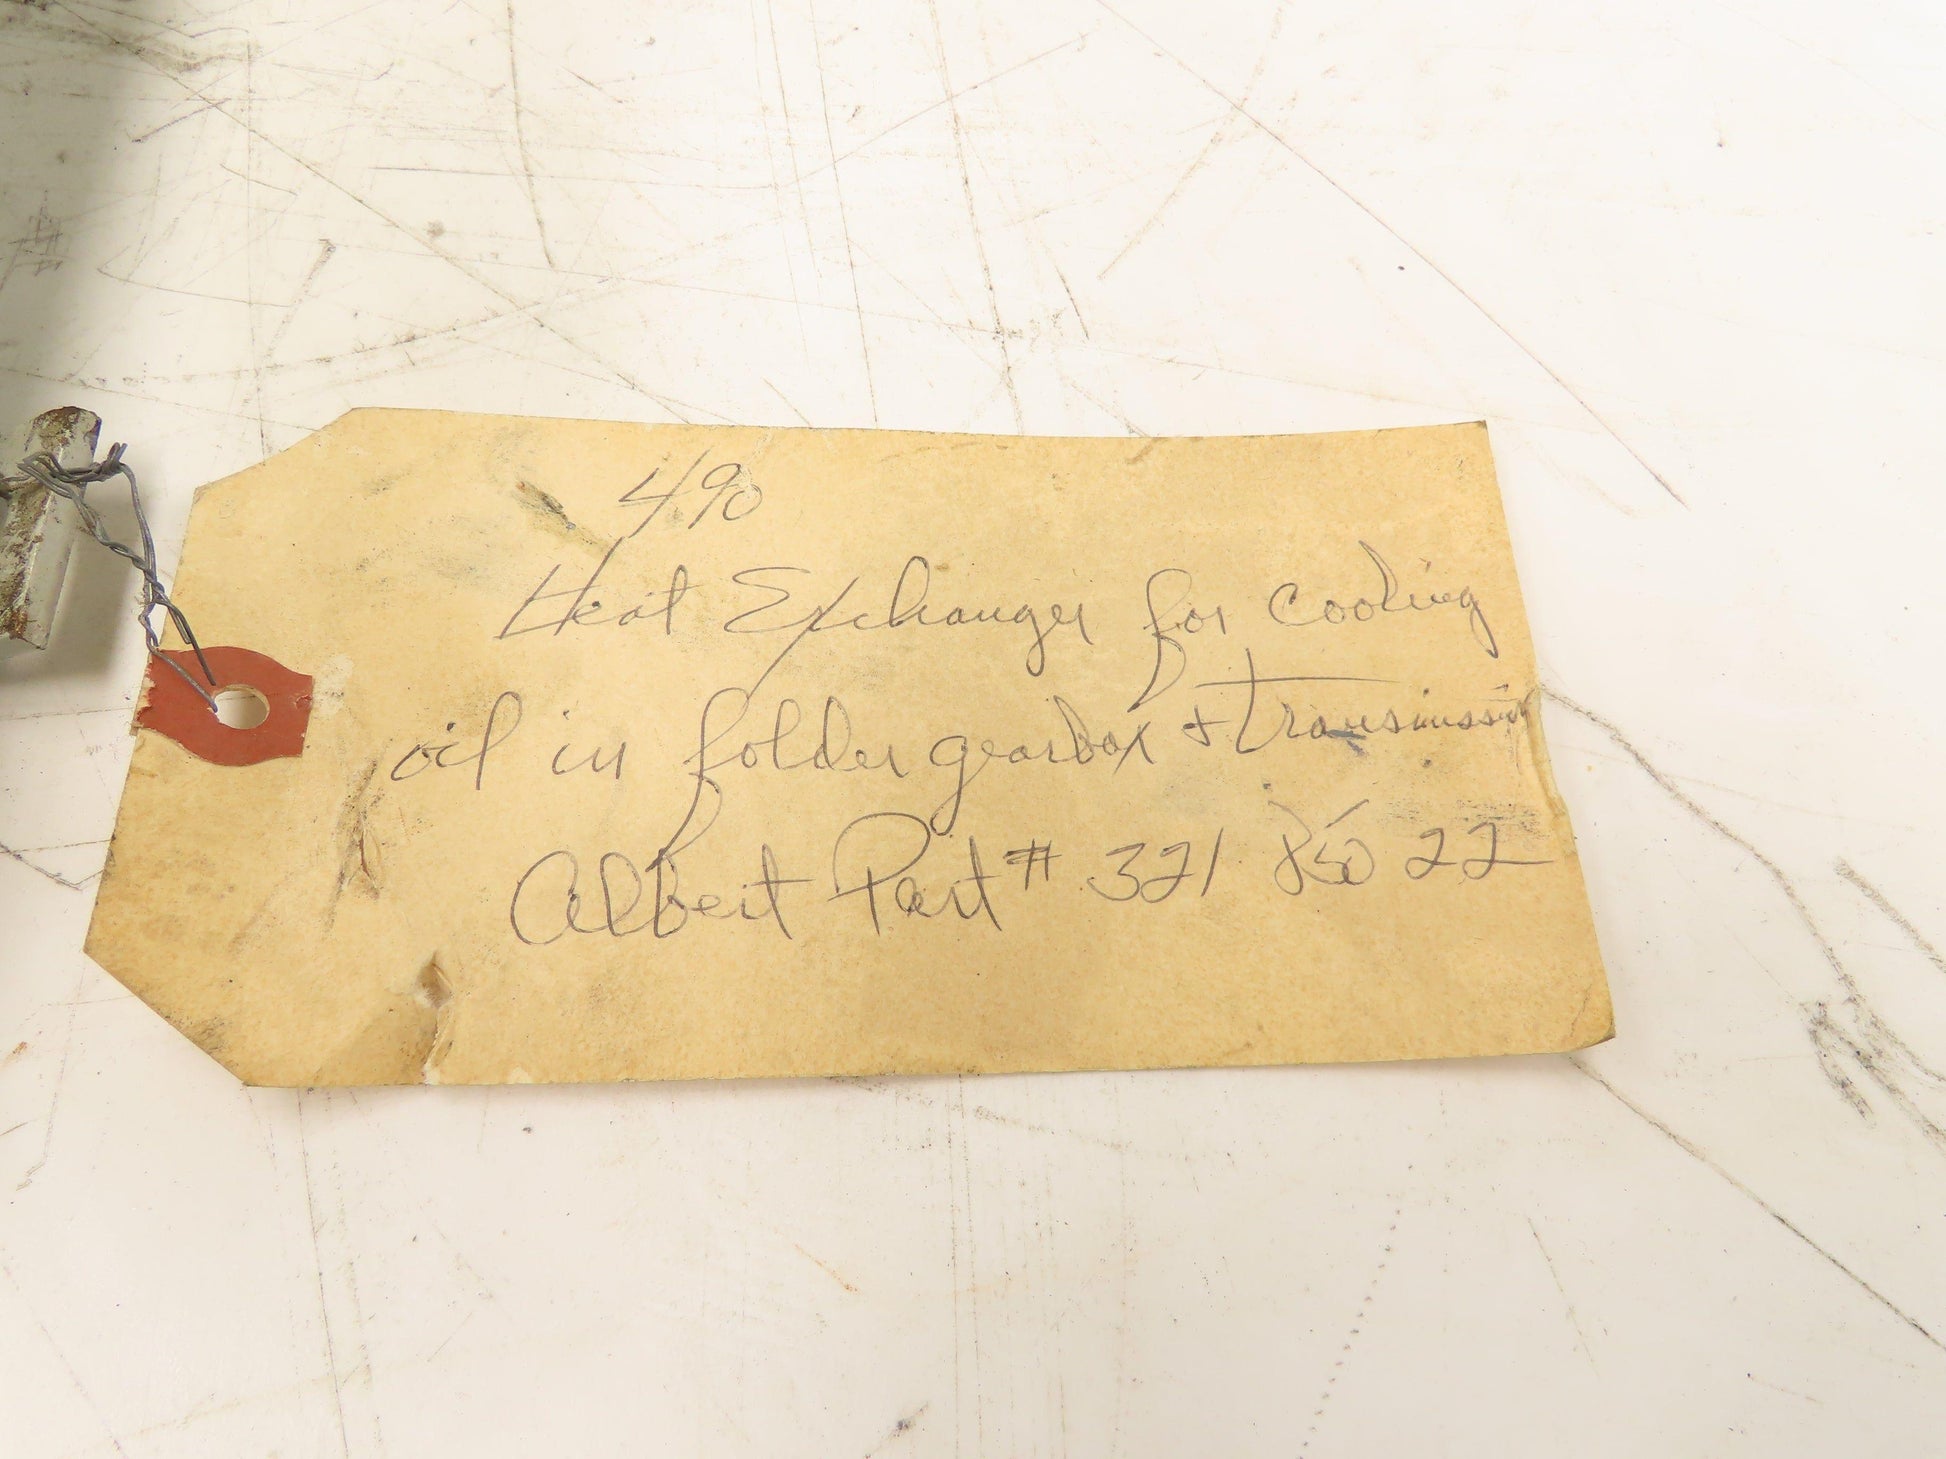 490
Heat Exchanger for cooling
oil in folder gearbox + transmission
Albert Part # 321 850 22